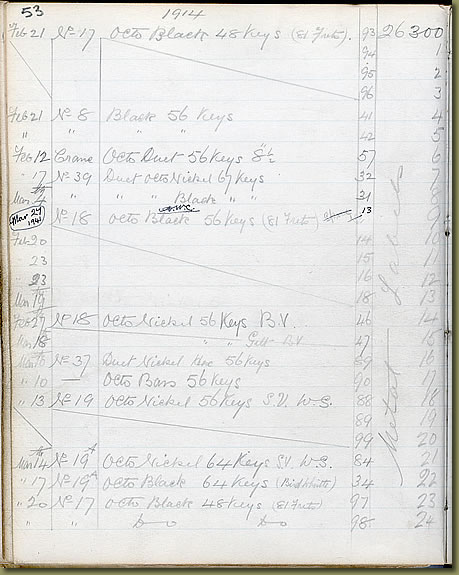 53 1914
Feb 21 No 17 Octo Black 48 Keys (81 Frets). 93 26300
94 1
95 2
96 3
Feb 21 No 8 Black 56 Keys 41 4
" " " " 42 5
Feb 12 Crane Octo Duet 56 Keys 8½ 57 6
" 17 No 39 Duet Octo Nickel 67 Keys 32 7
Mar 4 " " " Black " " 31 8
Mar 27 No 18 Octo Black 56 Keys (81 Frets) 13
Feb 20 14 10
23 15 11
23 16 12
Mar 19 18 13
Feb 27 No 18 Octo Nickel 56 Keys B.V. 46 14
Mar 18 " " Gilt B.V 47 15
No 37 Duet Nickel 56 Keys 16
" 10 — Octo Bass 56 Keys 90 17
" 13 No 19 Octo Nickel 56 Keys S.V. W.G. 88 18
89 19
99 20
Mar 14 No 19A Octo Nickel 64 Keys SV. W.G. 84 21
" 17 No 19A Octo Black 64 Keys 34 22
" 20 No 17 Octo Black 48 Keys (81 Frets) 97 23
" " Do Do 98 24
Metal Labels